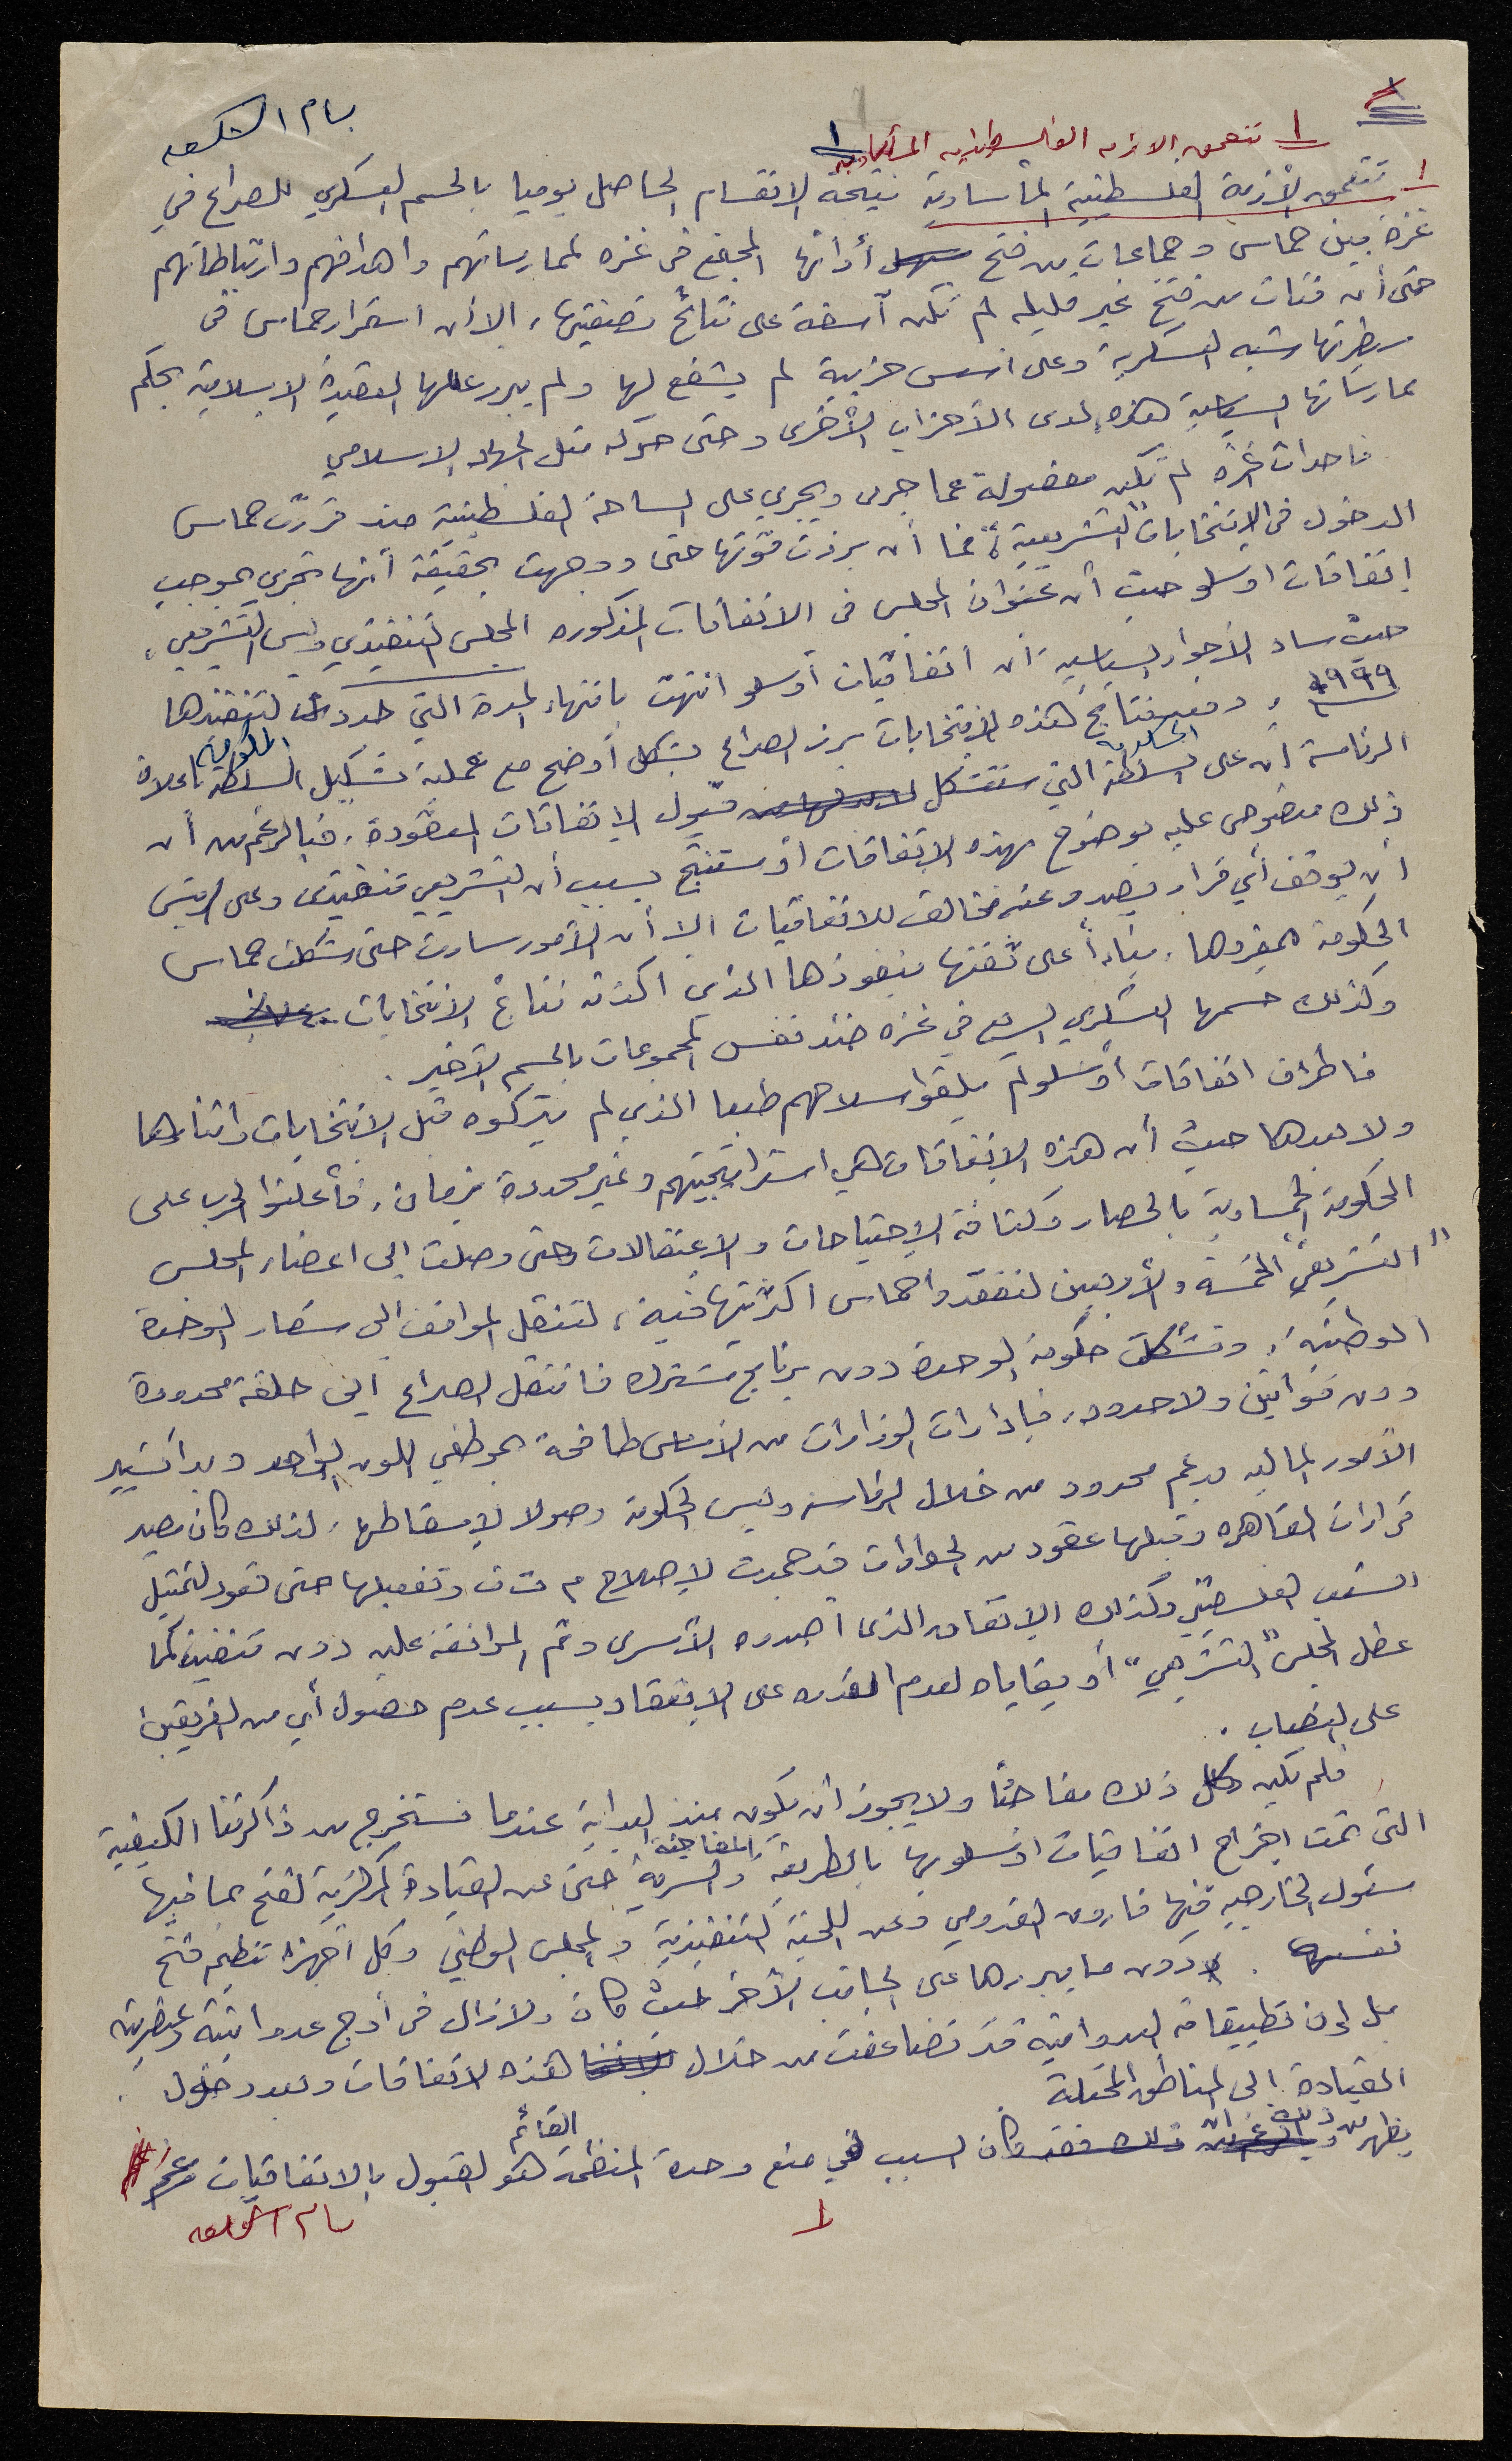 بسام الشكعه
١ تتعمق الازمه الفلسطينيه المأساويه ١
١ـ تتعمق الأزمة الفلسطينية المأساوية نتيجة الانقسام الحاصل يوميا بالحسم العسكري للصراع في
غزة بين حماس وجماعات من فتح أدانها المجتمع في غزه لممارساتهم واهدافهم وارتباطاتهم
حتى أن فئات من فتح غير قليله لم تكن آسفة على نتائج تصفيتها، الا أن استمرار حماس في
سيطرتها شبه العسكرية وعلى اسس حزبية لم يشفع لها ولم يبرر عملها العقيدة الاسلامية بحكم
ممارساتها السياسية هذه لدى الأحزاب الأخرى وحتى حركه مثل الجهاد الاسلامي
فاحداث غزه لم تكن مفصولة عما جرى ويجري على الساحة الفلسطينية منذ قررت حماس
الدخول في الانتخابات "التشريعية"، فما أن برزت قوتها حتى ووجهت بحقيقة أنها تجري بموجب
إتفاقات اوسلو حيث أن عنوان المجلس في الاتفاقات المذكوره المجلس التنفيذي وليس التشريعي،
حيث ساد الأجواء السياسيه أن اتفاقيات أوسلو انتهت بانتهاء المدة التي حددت لتنفيذها
١٩٩٩، ومع نتائج هذه الانتخابات برز الصراع بشكل أوضح مع عملية تشكيل السلطة الحكوميه باعلان
الرئاسة أن على السلطة الحكومية التي ستتشكل قبول الاتفاقات المعقودة، فبالرغم من أن
ذلك منصوص عليه بوضوح بهذه الاتفاقات أو ستنتج بسبب أن التشريعي تنفيذي وعلى الرئيس
أن يوقف أي قرار يصدر عنه مخالف للاتفاقيات الا أن الأمور سارت حتى شكلت حماس
الحكومة بمفردها، بناءاً على ثقتها بنفوذها الذي اكدته نتائج الانتخابات
وكذلك حسمها العسكري السريع في غزه ضد نفس المجموعات بالحسم الأخير.
فاطراف اتفاقات أوسلو لم يلقوا سلاحهم طبعا الذي لم يتركوه قبل الانتخابات واثناءها
ولا بعدها حيث أن هذه الاتفاقات هي استراتيجيتهم وغير محددة بزمان، فأعلنوا الحرب على
الحكومة الحمساوية بالحصار وكثافة الإجتياحات والاعتقالات وحتى وصلت الى اعضاء المجلس
"التشريعي" الخمسة والأربعين لتفقد حماس اكثريتها فيه، لتنتقل المواقف الى شعار الوحدة
الوطنيه، وتشكلت حكومة الوحدة دون برنامج مشترك فانتقل الصراع الى حلقة محدودة
دون قوانين ولا حدود، فبإدارات الوزارات من الأساس طافحة بموظفي اللون الواحد وبدأ تسيير
الأمور الماليه بدعم محدود من خلال الرئاسه وليس الحكومة وصولا لإسقاطها، لذلك كان مصير
قرارات القاهره وقبلها عقود من الحوارات قد جمدت لإصلاح م ت ف وتفعيلها حتى تعود لتمثيل
الشعب الفلسطيني وكذلك الإتفاق الذي اصدره الأسرى وتم الموافقة عليه دون تنفيذ كما
عطل المجلس "التشريعي" أو بقاياه لعدم القدره على الانعقاد بسبب عدم حصول أي من الفريقين
على النصاب.
فلم يكن كل ذلك مفاجئا ولا يجوز أن يكون منذ البداية عندما نستخرج من ذاكرتنا الكيفية
التي تمت اخراج اتفاقيات اوسلو بها بالطريقه المفاجئه والسرية حتى عن القيادة المركزية لفتح بما فيها
مسئول الخارجيه فيها فاروق القدومي وعن اللجنة التنفيذية والمجلس الوطني وكل اجهزة تنظيم فتح
نفسها. دون ما يبررها على الجانب الأخر حيث كان ولا زال في أوج عدوانيته وعنصريته
بل ان تطبيقاته العدوانية قد تضاعفت من خلال هذه الاتفاقات وبعد دخول
القيادة الى المناطق المحتلة.
يظهر من ذلك ان السبب في منع وحدة المنظمة القائم هو القبول بالاتفاقيات
١
بسام الشكعه